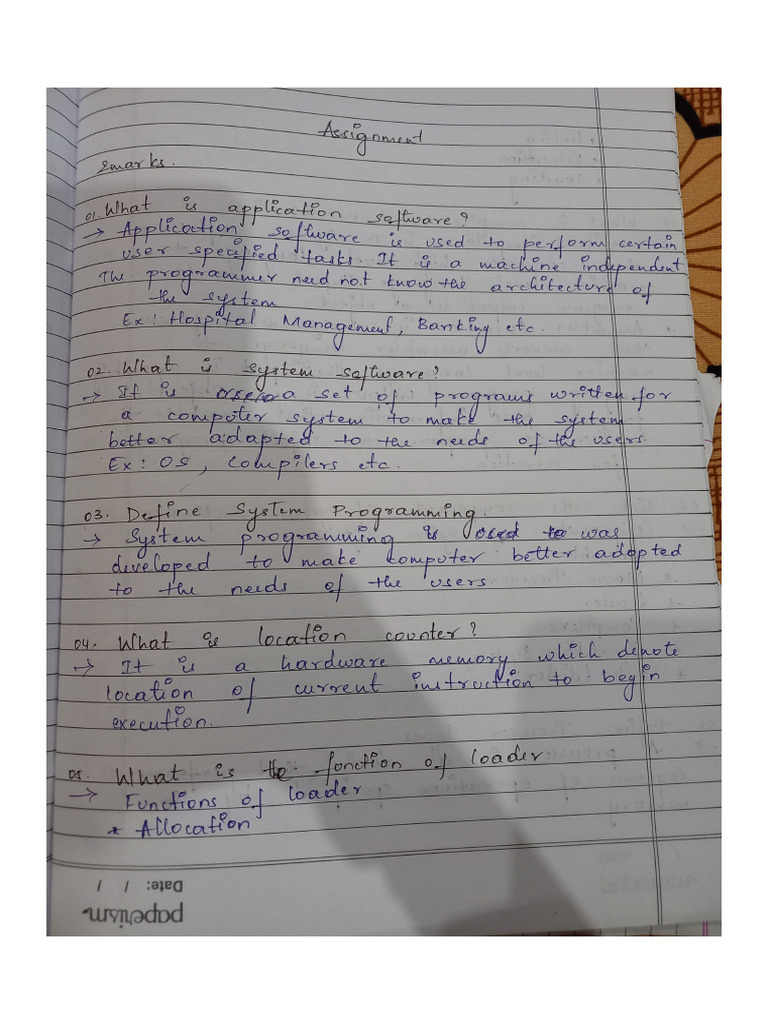 Assignment
2marks.
01. What is application software?
→ Application software is used to perform certain
user specified tasks. It is a machine independent
The programmer need not know the architecture of
the system
Ex: Hospital Management, Banking etc.
02. What is system software?
→ It is a set of programs written for
a computer system to make the system
better adapted to the needs of the users.
Ex: OS, compilers etc.
03. Define System Programming.
→ System programming is used to was
developed to make computer better adapted
to the needs of the users
04. What is location counter?
→ It is a hardware memory which denote
location of current instruction to begin
execution.
05. What is the function of loader
→ Functions of loader
* Allocation
Date: / /
paperism